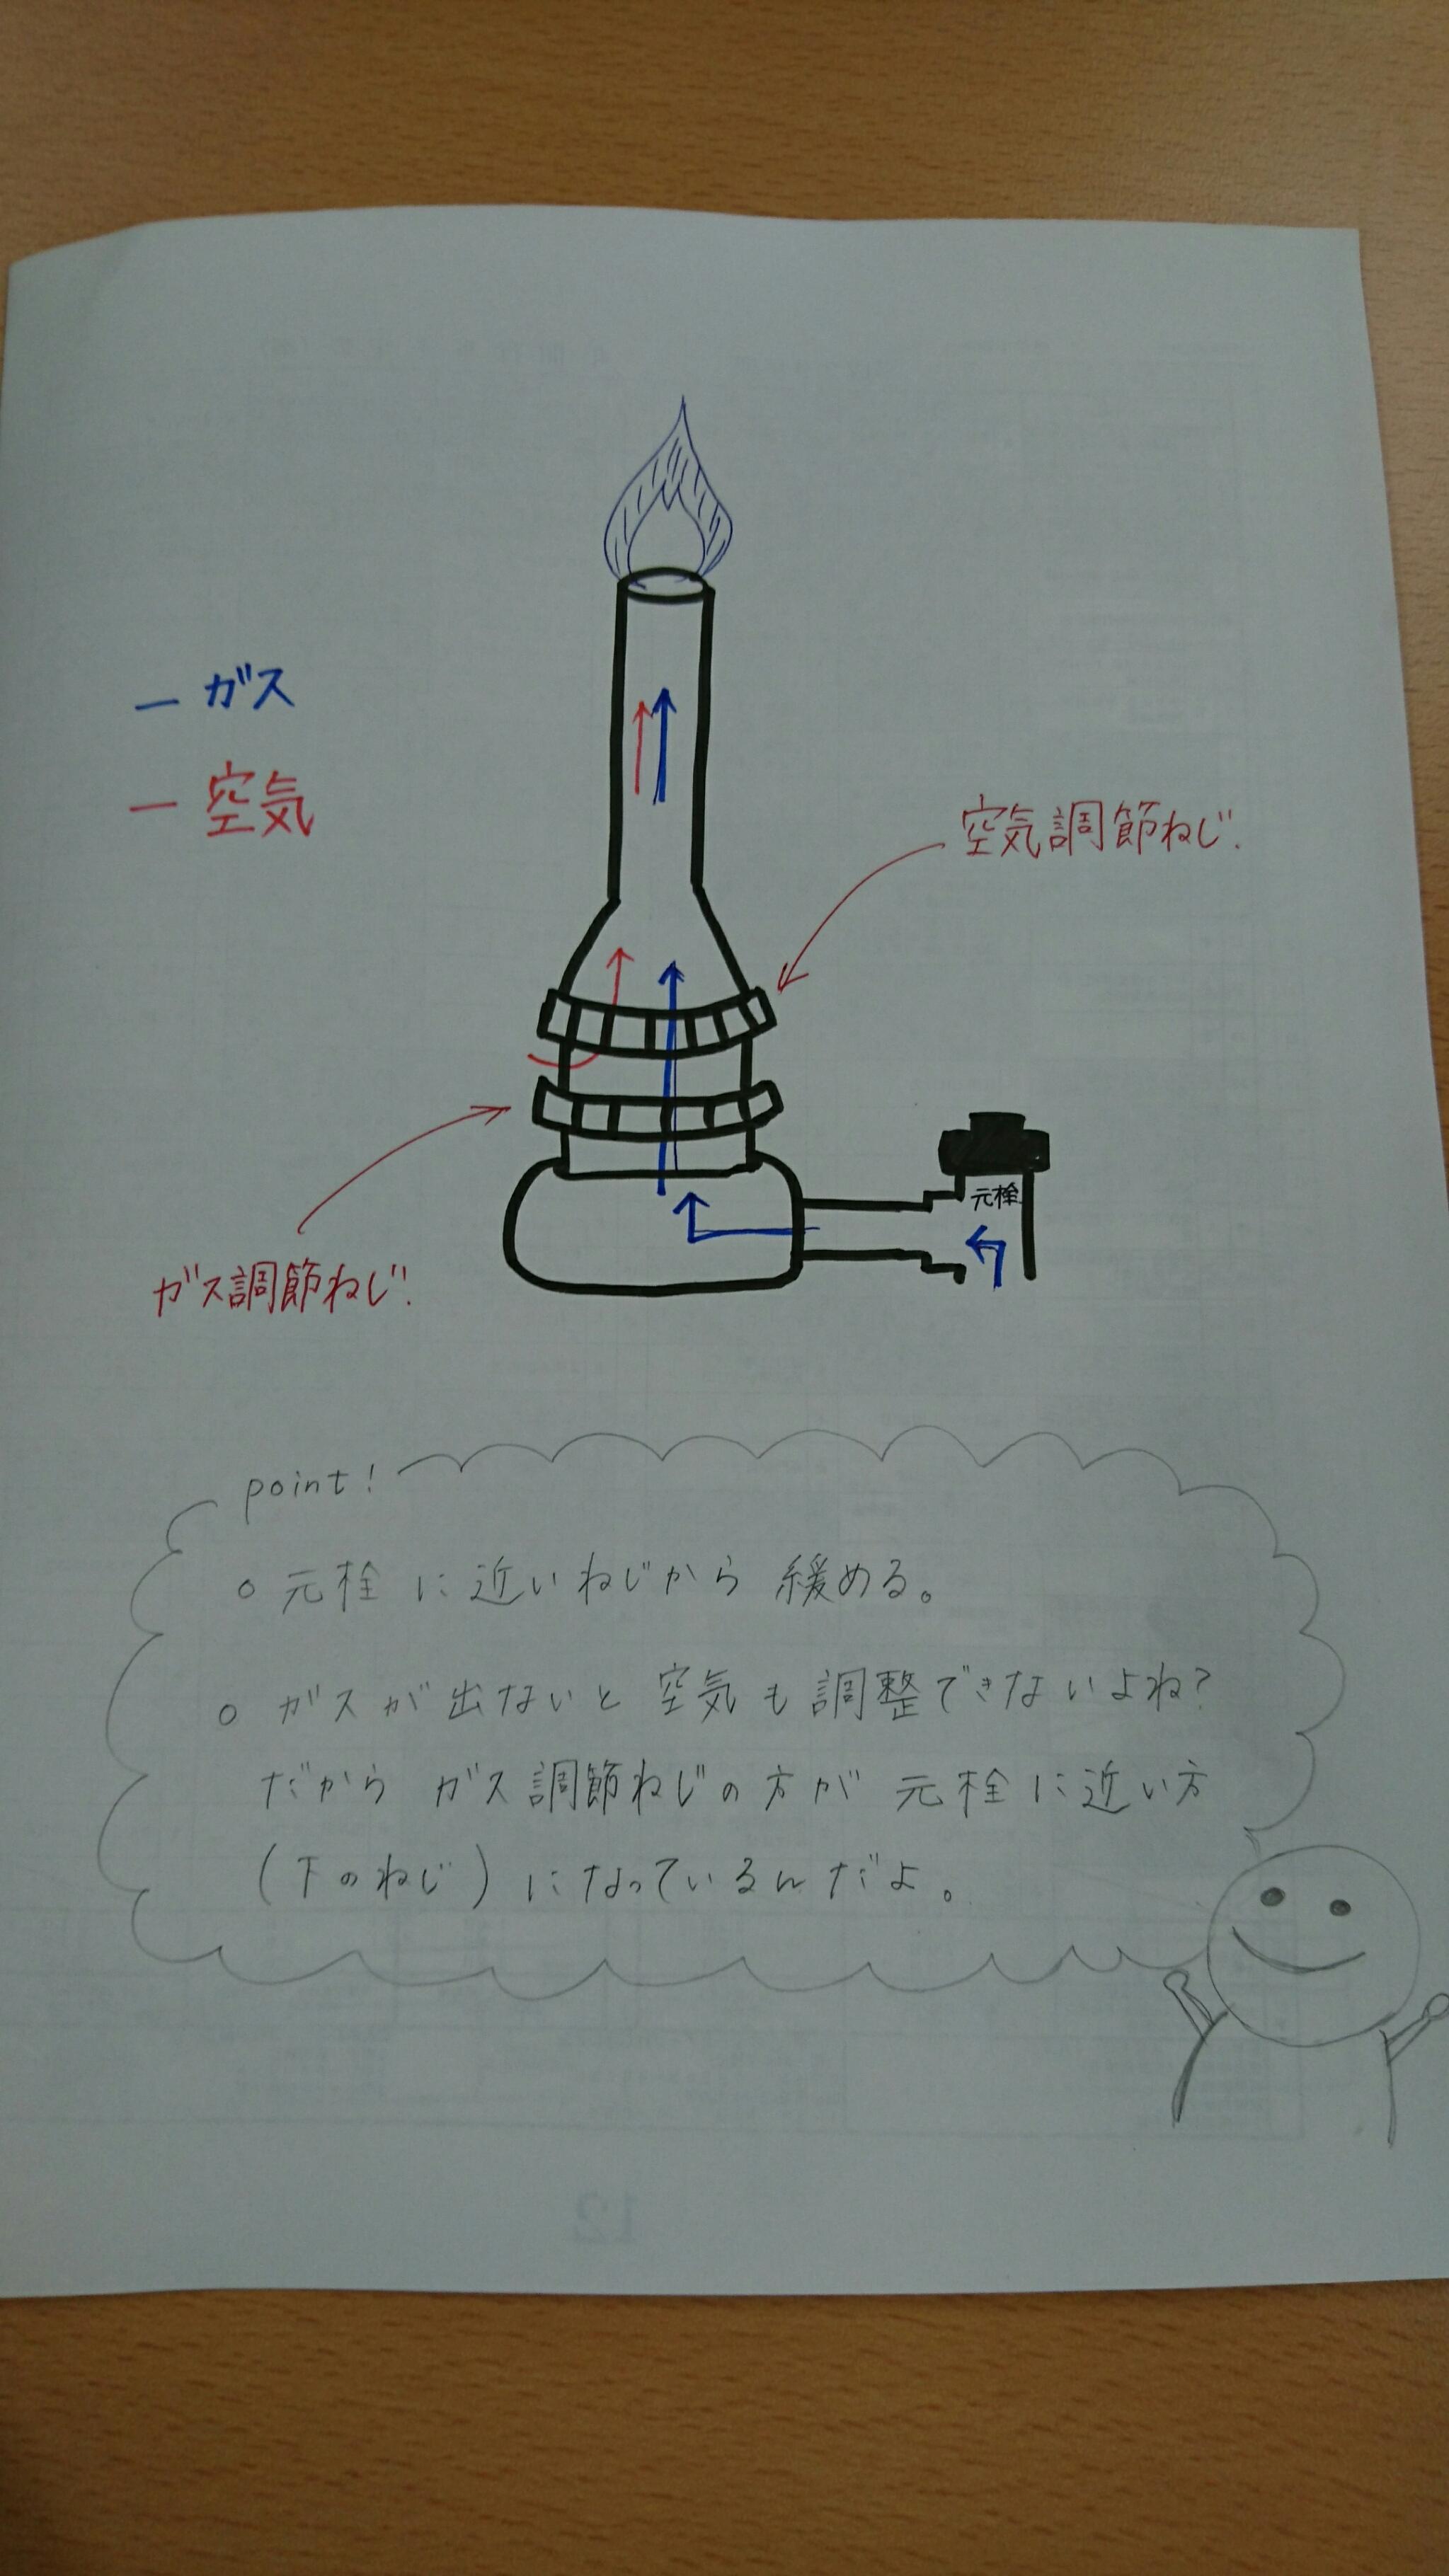 ガス
空気
空気調節ねじ.
元栓
ガス調節ねじ.
point!
○ 元栓に近いねじから緩める。
○ ガスが出ないと空気も調整できないよね?
だからガス調節ねじの方が元栓に近い方
(下のねじ)になっているんだよ。
12